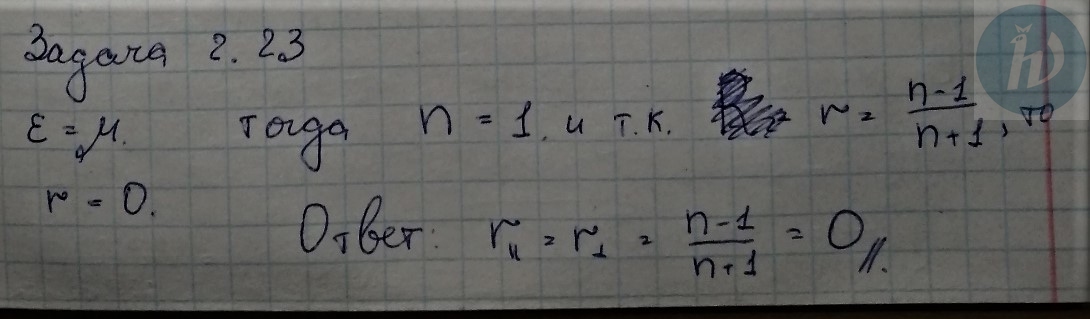 Задача 2.23
ε = μ. тогда n = 1. и т.к. r = \frac{n-1}{n+1}, то
r = 0.
Ответ: r_{||} = r_⊥ = \frac{n-1}{n+1} = 0//.